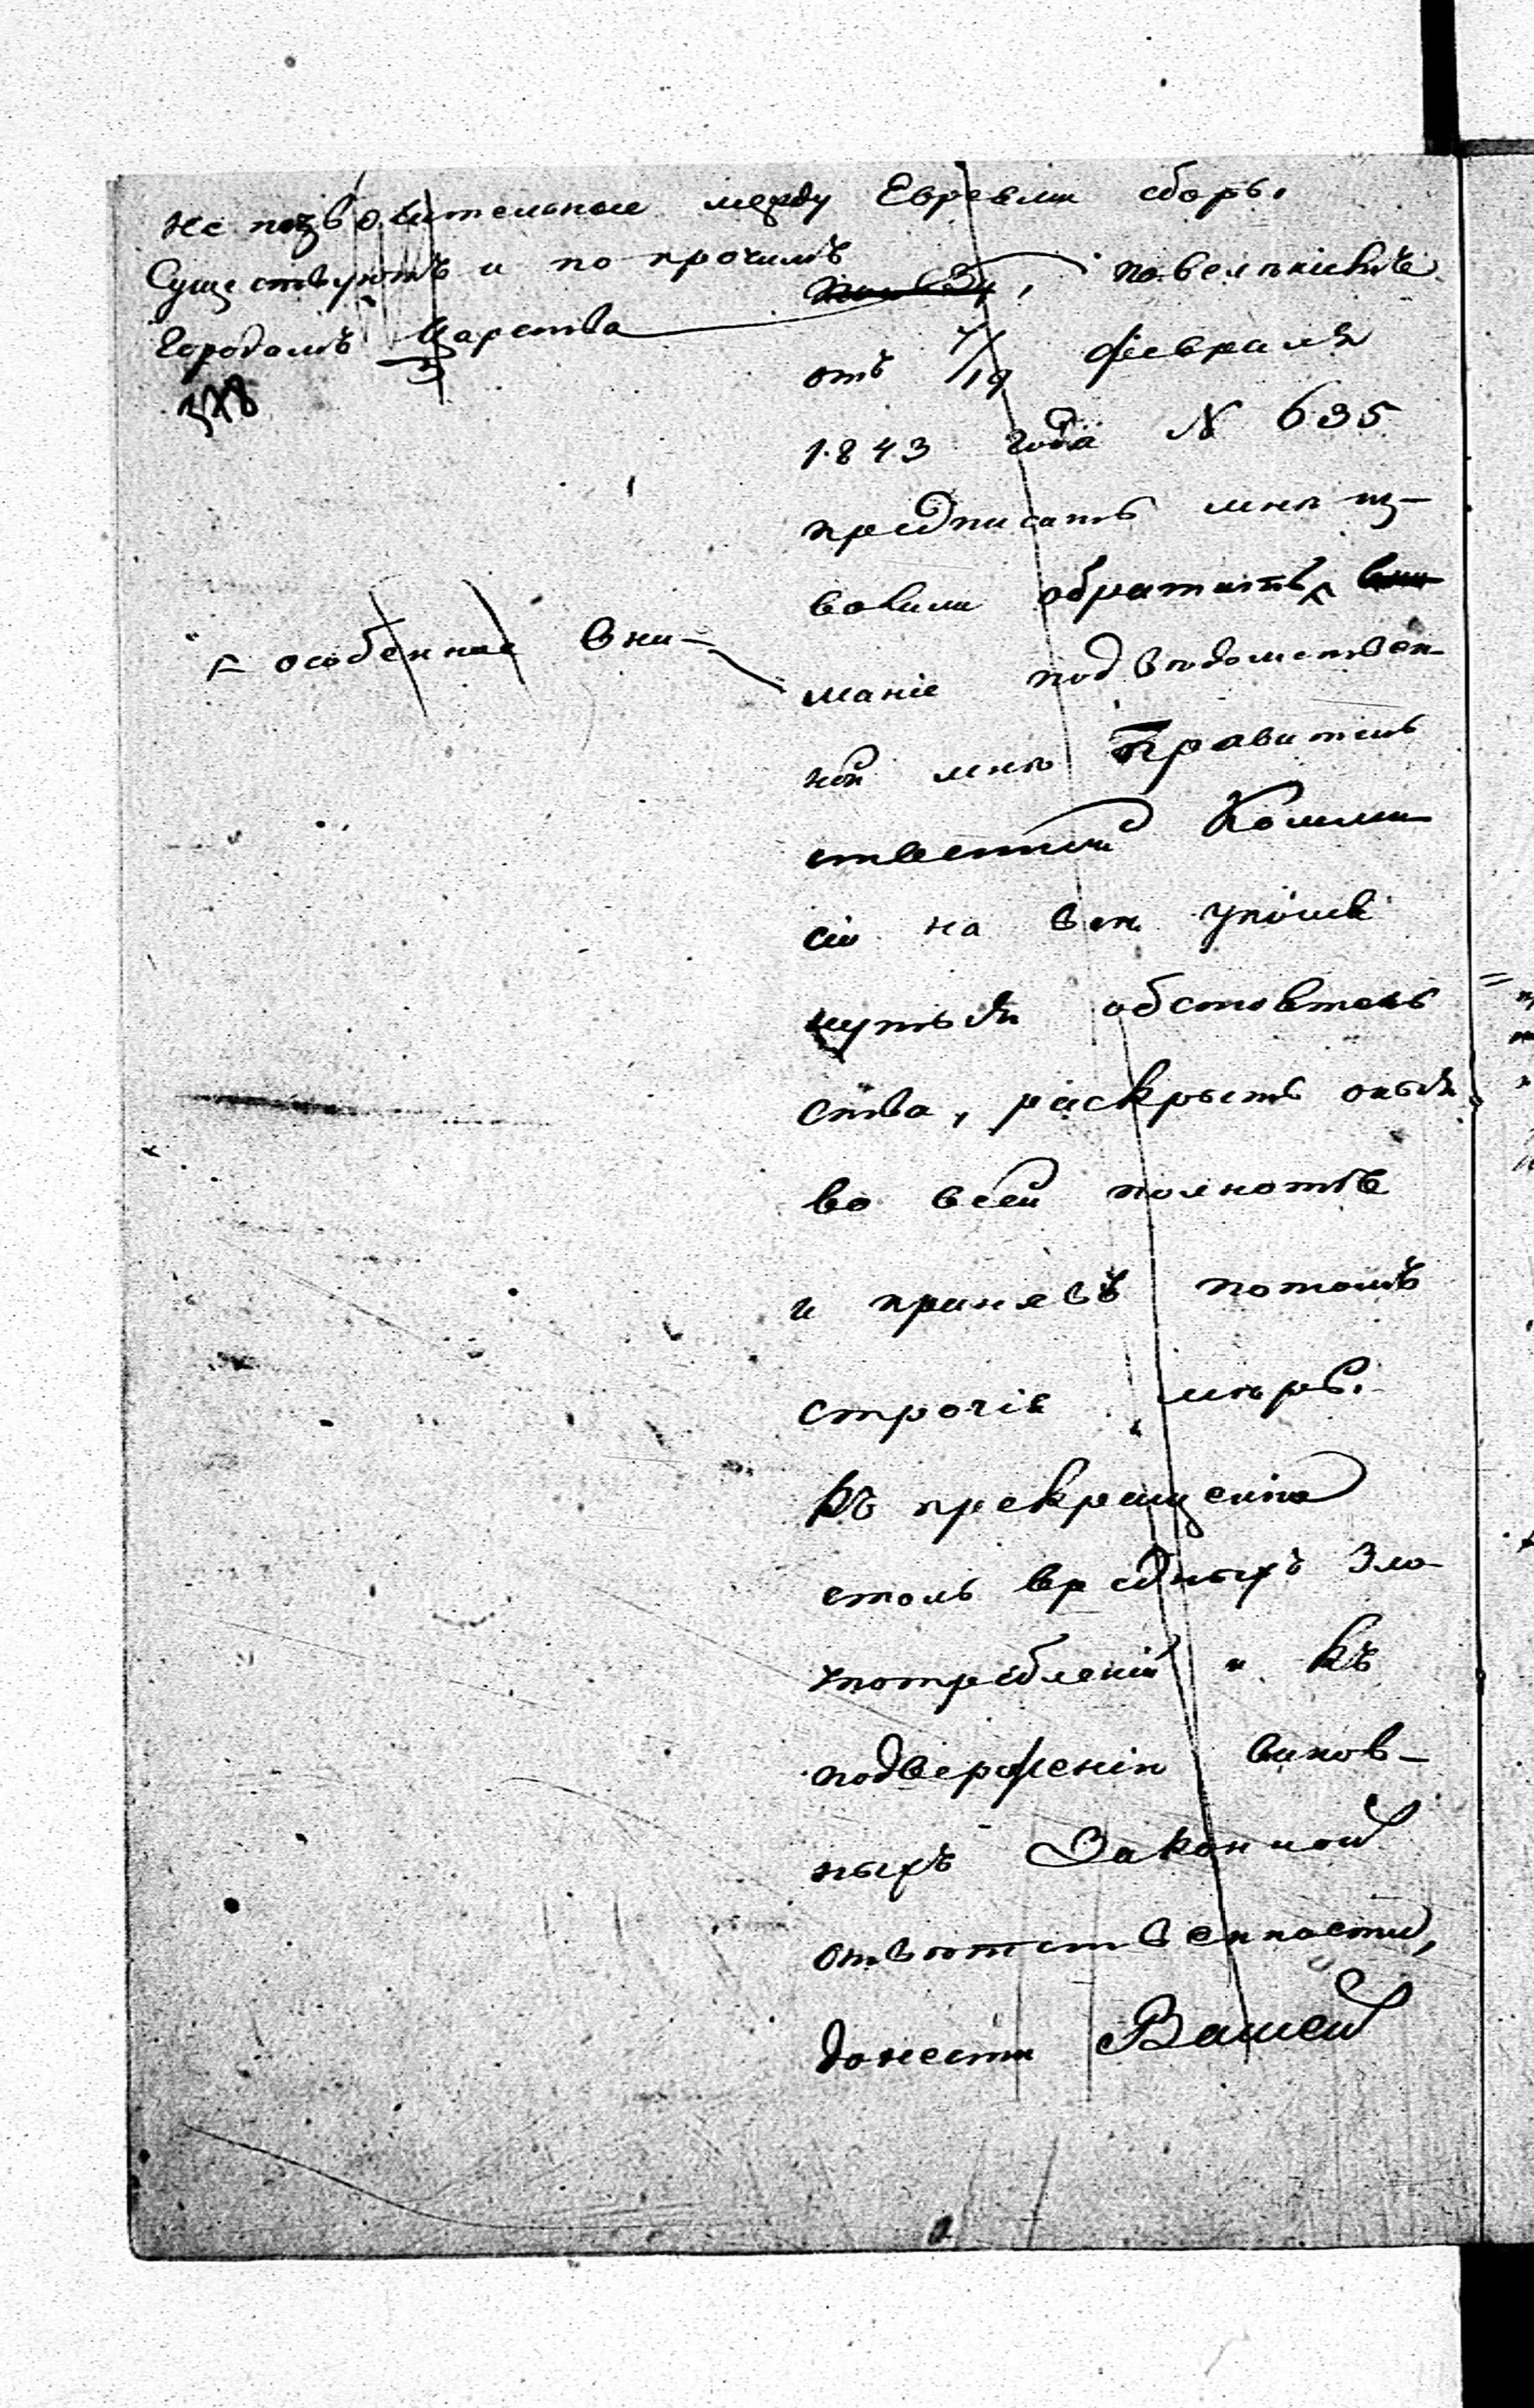 не позволительные между Евреями сборы
Существуютъ и по прочимъ
Городамъ Царства
, повелѣніемъ
отъ 7/19 Февраля
1843 года № 635
предписать мнѣ из-
волили обратить ⊢
⊢ особенное вни-
маніе подвѣдомствен-
ной мнѣ Правитель
ственной Комми
сіи на всѣ упомя
нутыя обстоятель
ства, раскрыть оныя
во всей полнотѣ
и принявъ потомъ
строгія мѣры
къ прекращенію
столь вредныхъ зло-
употребленій и къ
подверженію винов-
ныхъ Законной
отвѣтственности,
донести Вашей